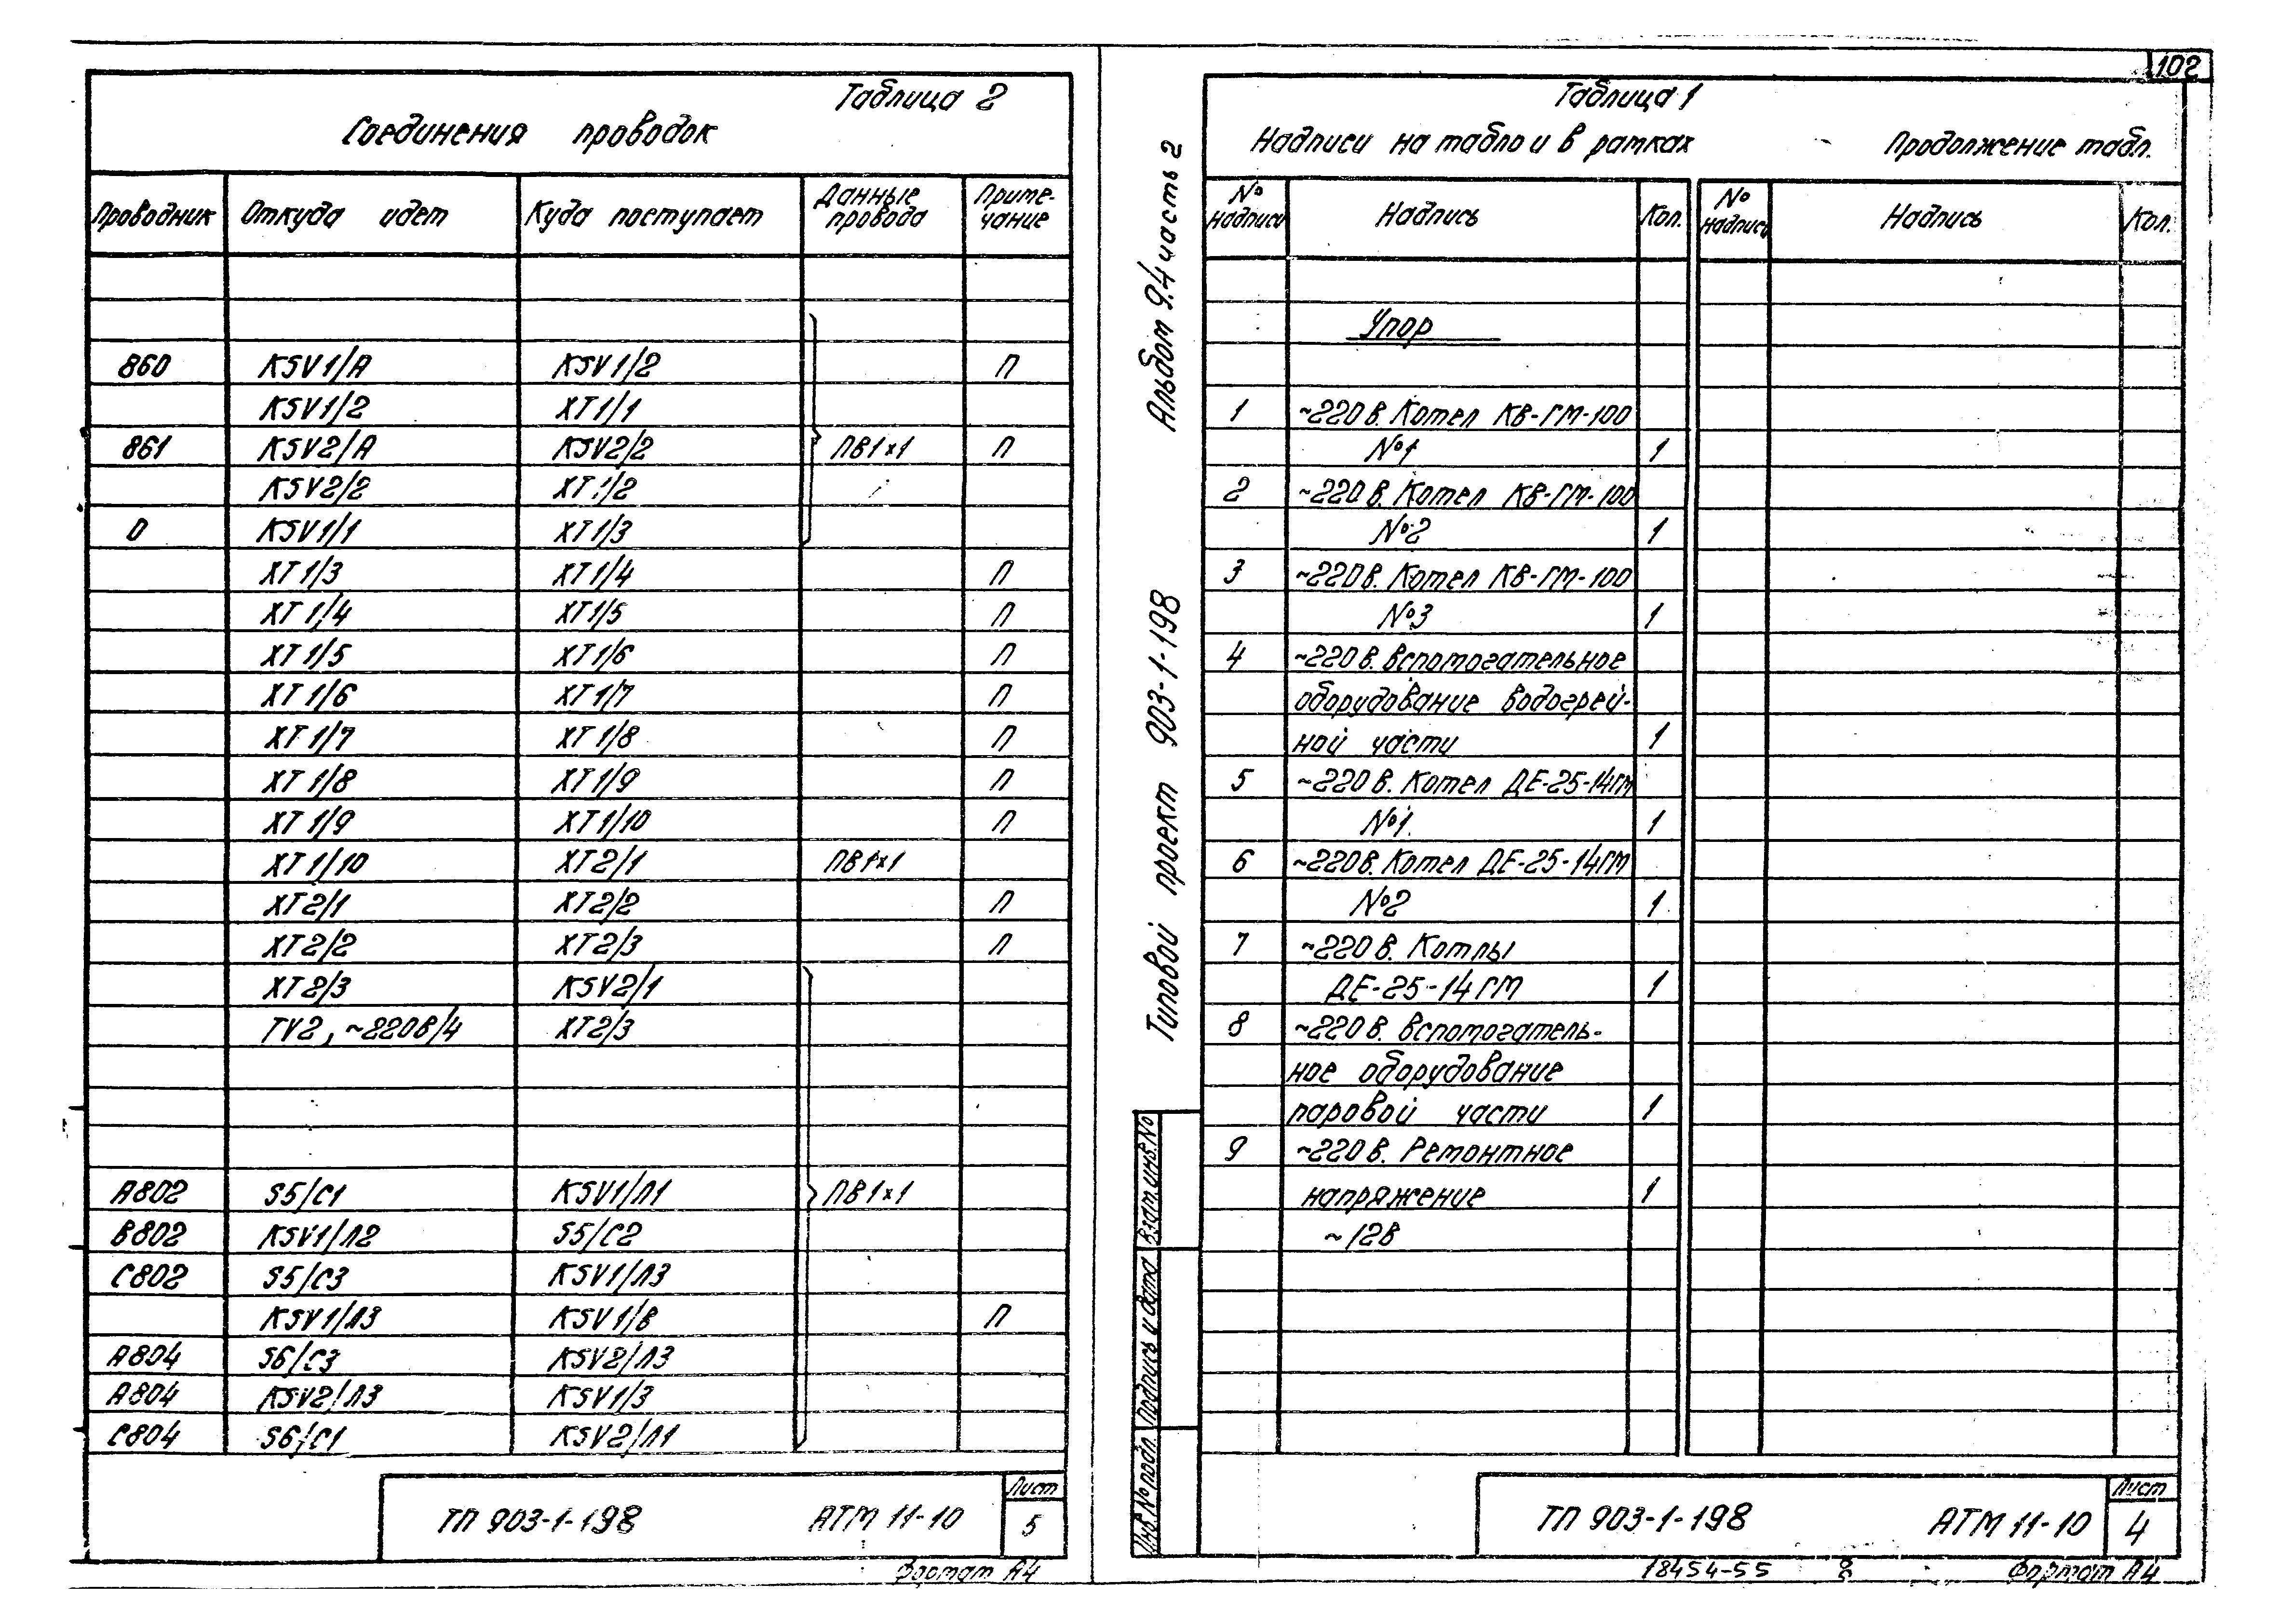 Таблица 2
Соединения проводок
Проводник Откуда идет Куда поступает Данные провода Примечание
860 KSV1/A KSV1/2 П
KSV1/2 XT1/1
861 KSV2/A KSV2/2 ПВ1×1 П
KSV2/2 XT1/2
0 KSV1/1 XT1/3
XT1/3 XT1/4 П
XT1/4 XT1/5 П
XT1/5 XT1/6 П
XT1/6 XT1/7 П
XT1/7 XT1/8 П
XT1/8 XT1/9 П
XT1/9 XT1/10 П
XT1/10 XT2/1 ПВ1×1
XT2/1 XT2/2 П
XT2/2 XT2/3 П
XT2/3 KSV2/1
TV2, ~220В/4 XT2/3
A802 S5/C1 KSV1/Л1 ПВ1×1
B802 KSV1/Л2 S5/C2
C802 S5/C3 KSV1/Л3
KSV1/Л3 KSV1/В П
A804 S6/C3 KSV2/Л3
A804 KSV2/Л3 KSV1/3
C804 S6/C1 KSV2/Л1
ТП 903-1-198 АТМ 11-10 Лист 5
Формат А4
102
Альбом 9.4 часть 2
Типовой проект 903-1-198
Взам.инв.№
Подпись и дата
Инв.№ подл.
Таблица 1
Надписи на табло и в рамках Продолжение табл.
№ надписи Надпись Кол. № надписи Надпись Кол.
Упор
1 ~220 в. Котел КВ-ГМ-100
№1 1
2 ~220 в. Котел КВ-ГМ-100
№2 1
3 ~220 в. Котел КВ-ГМ-100
№3 1
4 ~220 в. Вспомогательное
оборудование водогрей-
ной части 1
5 ~220 в. Котел ДЕ-25-14ГМ
№1. 1
6 ~220 в. Котел ДЕ-25-14ГМ
№2 1
7 ~220 в. Котлы
ДЕ-25-14ГМ 1
8 ~220 в. Вспомогатель-
ное оборудование
паровой части 1
9 ~220 в. Ремонтное
напряжение 1
~12В
ТП 903-1-198 АТМ 11-10 Лист 4
18454-55 Формат А4